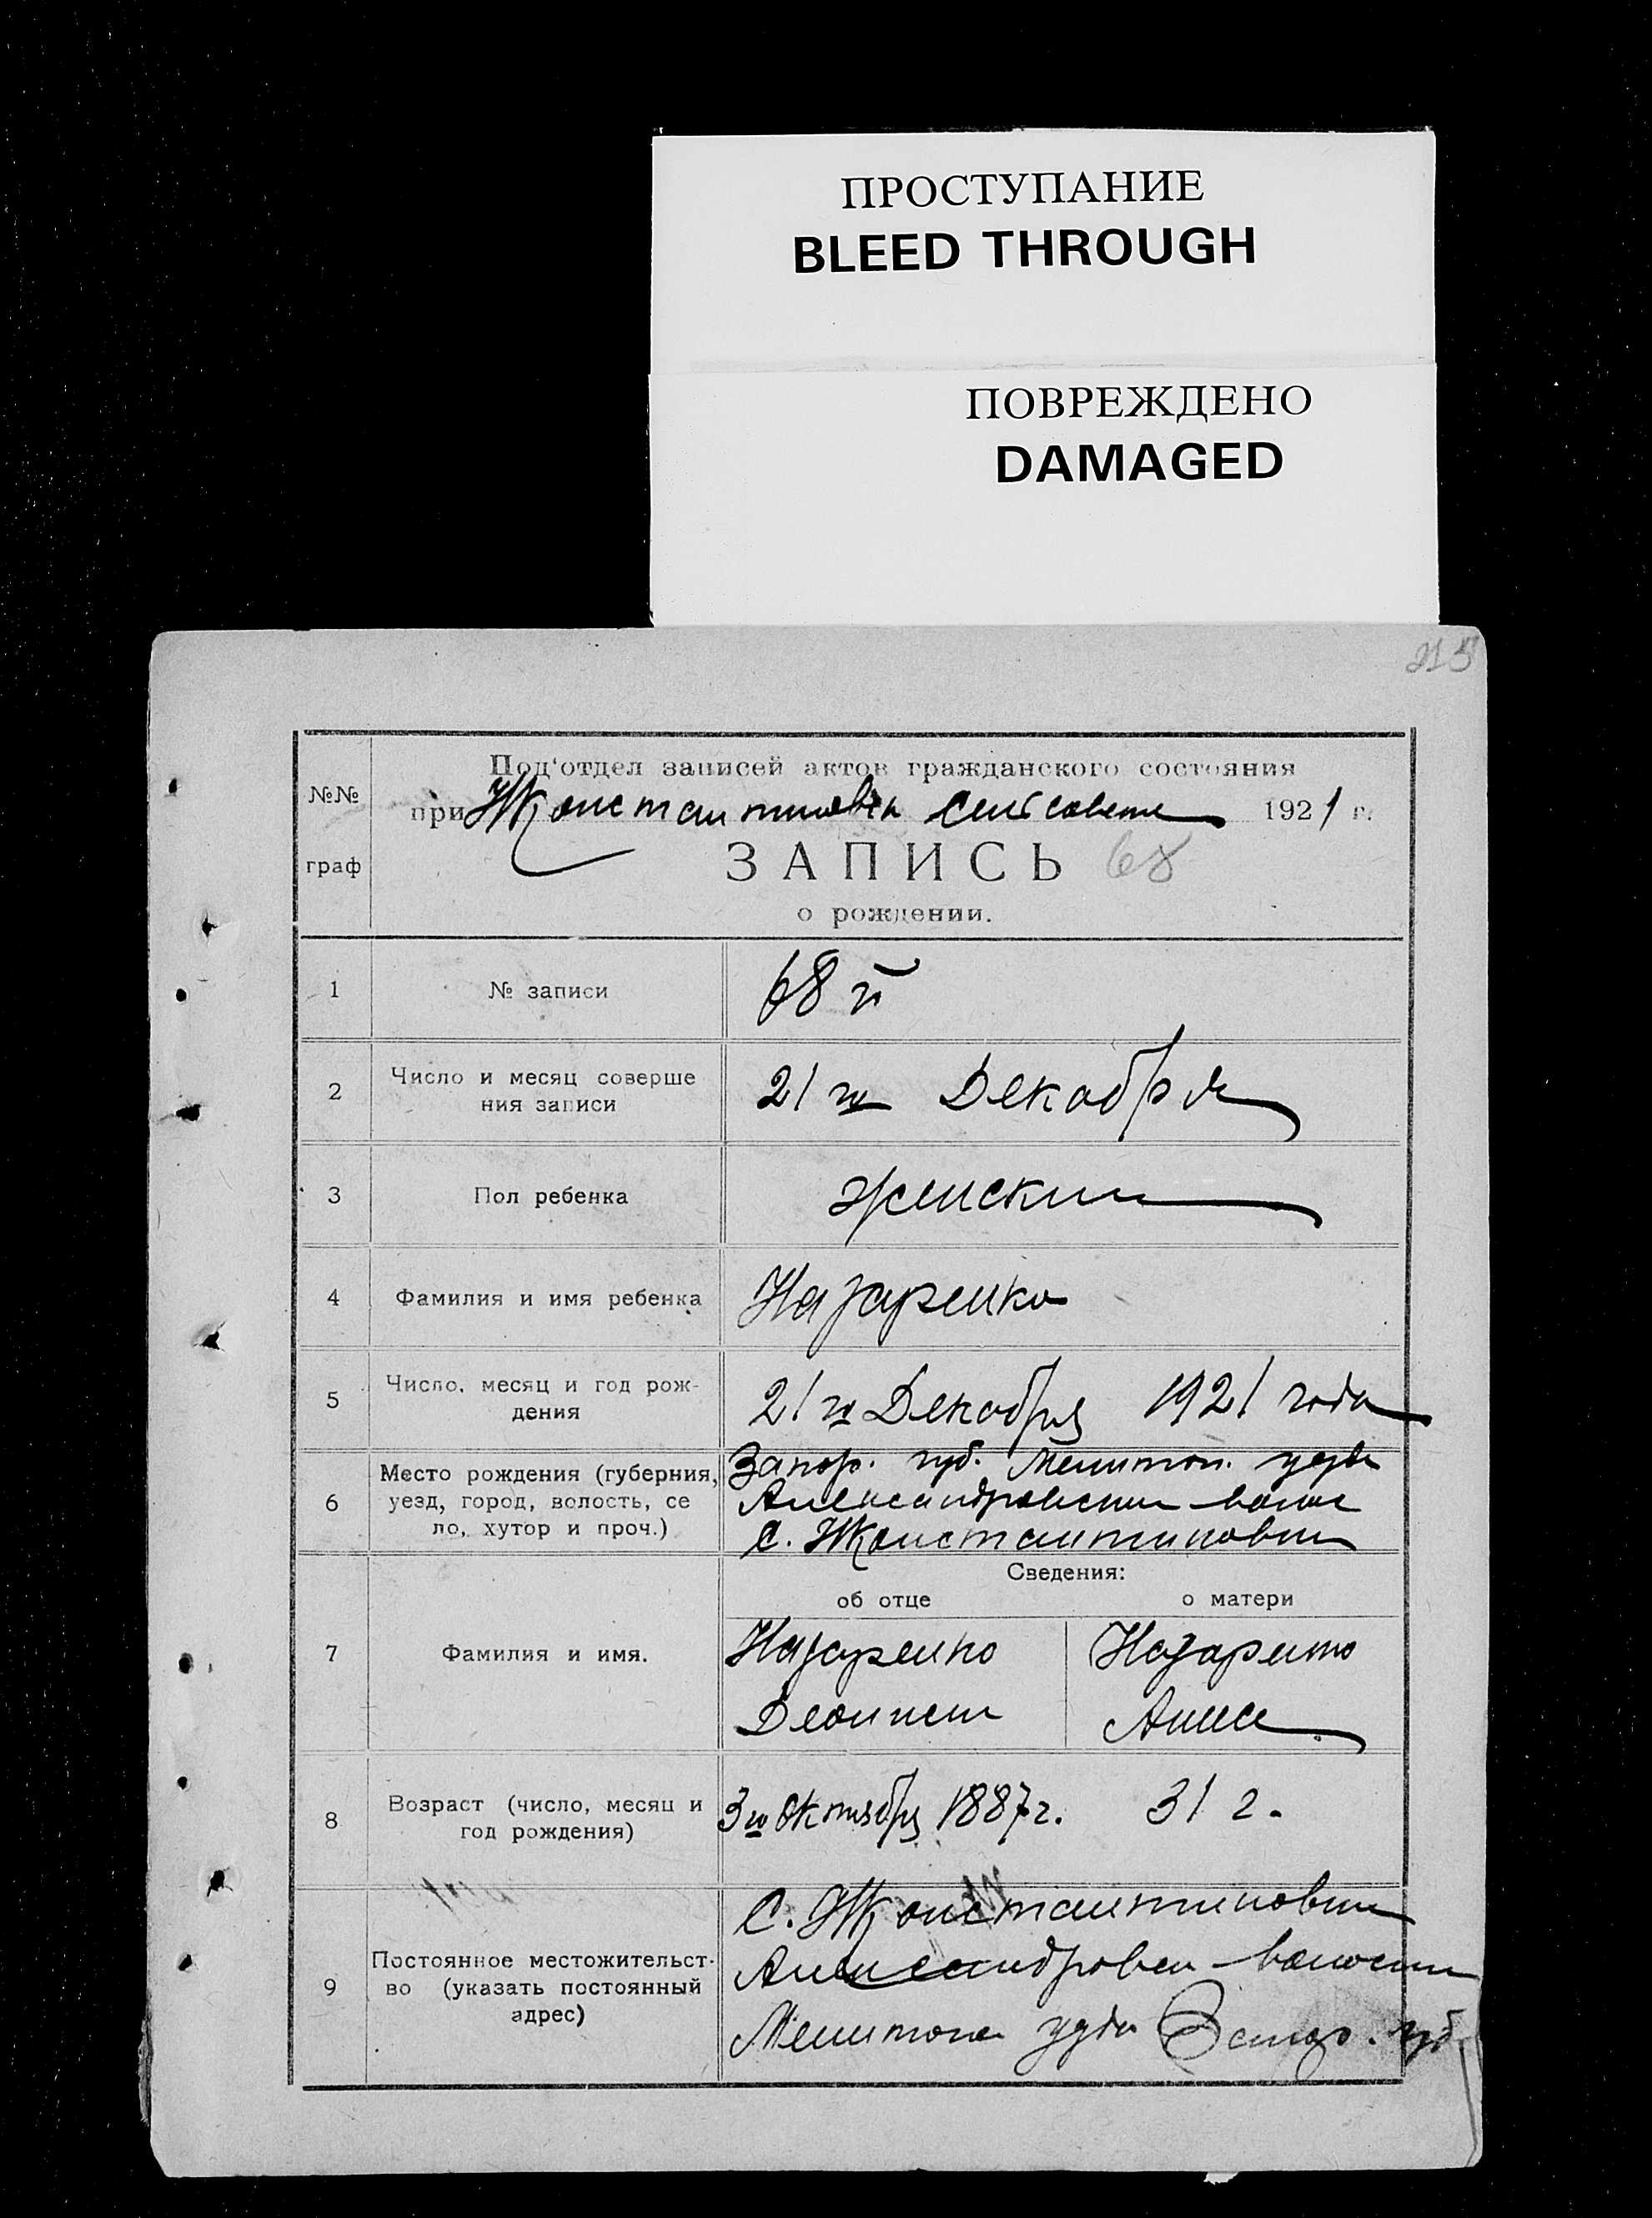 ПРОСТУПАНИЕ
BLEED THROUGH
ПОВРЕЖДЕНО
DAMAGED
215
№№
граф
Под'отдел записей актов гражданского состояния
при Константиновск сельсовете 1921 г.
ЗАПИСЬ 68
о рождении.
1 № записи 68й
2 Число и месяц соверше
ния записи
21го Декабря
3 Пол ребенка женский
4 Фамилия и имя ребенка Назаренко
5 Число, месяц и год рож-
дения
21го Декабря 1921 года
6 Место рождения (губерния,
уезд, город, волость, се
ло, хутор и проч.)
Запор. губ. Мелитоп. уезда
Александровской волос
с. Константиновки
Сведения:
об отце о матери
7 Фамилия и имя.
Назаренко Назаренко
Анна
8 Возраст (число, месяц и
год рождения)
3го Октября 1887 г. 31 г.
9 Постоянное местожительст-
во (указать постоянный
адрес)
С. Константиновки
Александровск волости
Мелитопол уезда Запор. губ